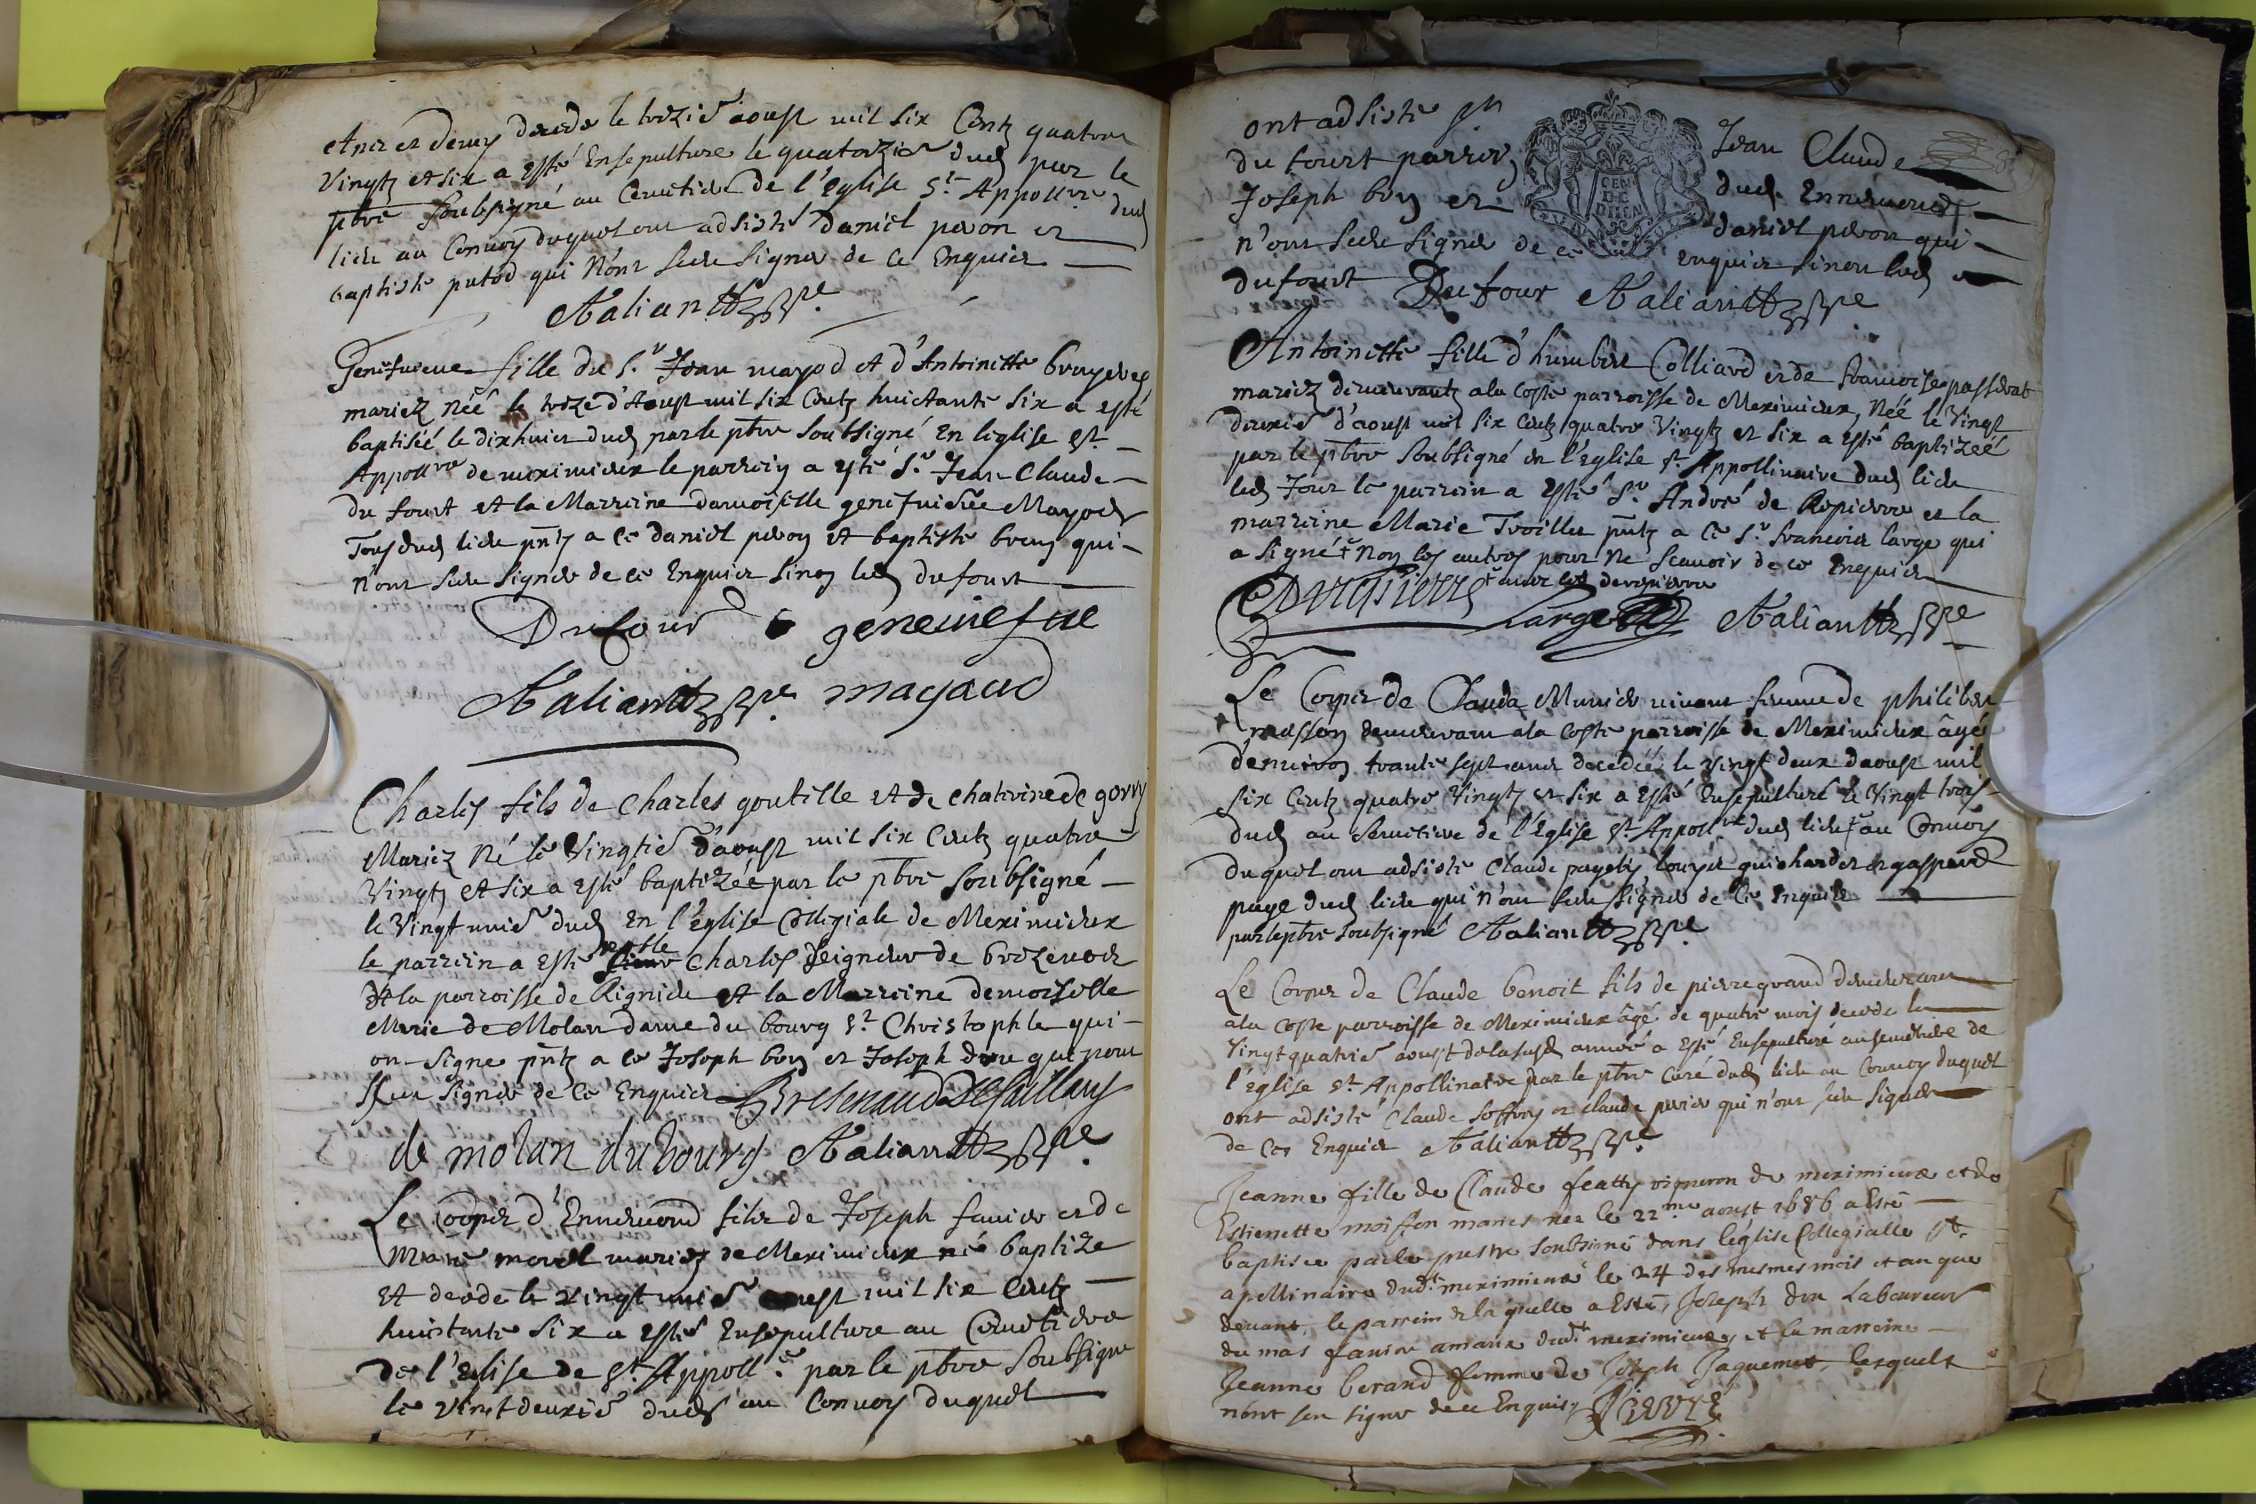 et demy decede le trezie aoust mil six Centz quatre
Vingtz et six a esté Ensepulture le quatorzie dud par le
pbre soubsigné au Cemetiere de l'Eglise St Appollre dud
lieu au Convoy duquel ont adsisté Daniel peron et
baptiste putod qui n'ont sceu signer de ce Enquier
Aaliantt pre
Genefuieue fille du Sr Jean mayod et d'Antoinette bruyeres
mariez née le treze d'Aoust mil six Centz huictante six a esté
baptisée le dixhuict dud par le pbre soubsigné En leglise St
Appollre de meximieux le parrein a esté Sr Jean Claude
du fourt et la Marreine damoiselle genefuiefue Mayod
Tous dud lieu pntz a ce daniel peron et baptiste brun qui
n'ont sceu signer de ce Enquier sinon led dufourt
Dufour geneuiefue
Aaliantt pre magaud
Charles fils de Charles goutelle et de Chaterine de gorry
Mariez Né le Vingtie d'aoust mil six Centz quatre
Vingtz et six a esté baptizée par le pbre soubsigné
le Vingt unie dud En l'Eglise Collegiale de Meximieux
le parrein a esté noble Charles seigneur de brezenod
de la parroisse de Rignieu et la Marreine demoiselle
Marie de Molan dame du bourg St Christophle qui
on signe pntz a ce Joseph bon et Joseph dru qui n'ont
sceu signer de ce Enquier Bresenaud
de molan du bourg Aaliantt pre
Le Corps d'Ennemond fils de Joseph favier et de
Marie morel mariez de Meximieux né baptize
et decede le vingt unie aoust mil six Centz
huictante six a esté Ensepulture au Cemetiere
de l'Eglise de St Appolle par le pbre soubsigne
le vingt deuxie dud au Convoy duquel
ont adsisté Jean Claude
du fourt parrein dud Ennemond
Joseph bon et daniel peron qui
n'ont sceu signer de ce enquier sinon led
dufourt Dufour Aaliantt pre
Antoinette fille d'humbert Colliard et de francoise passerat
mariez demeurantz a la Coste parroisse de Meximieux, Née le Vingt
deuxie d'aoust mil six Centz quatre Vingtz et six a esté baptizeé
par le pbre soubsigné en l'Eglise St Appollinaire dud lieu
led Jour le parrein a esté Sr André de Ropierre et la
marreine Marie Trollier pntz a ce Sr francois large qui
a signé Non les autres pour Ne scauoir de ce Enquier
auec led deropierre
Deropierre Large Aaliantt pre
Le Corps de Claude Munier vivant femme de philibert
masson demeurant a la Coste parroisse de Meximieux âgé
d'environ trante sept ans decedée le vingt deux d'aoust mil
six Centz quatre Vingtz et six a esté Ensepulturé le Vingt trois
dud au Cemetiere de l'Eglise St Appollre dud lieu au Convoy
duquel ont adsisté Claude pagets, louys guichardet et gaspard
page dud lieu qui n'ont sceu signer de ce Enquier
par le pbre soubsigné Aaliantt pre
Le Corps de Claude benoit fils de pierre grand demeurant
a la Coste parroisse de Meximieux âgé de quatre mois decede le
Vingt quatrie aoust de la susd année a esté Ensepulturé au semetiere de
l'Eglise St Appollinaire par le pbre Curé dud lieu au Convoy duquel
ont adsisté Claude Joffrey et Claude perier qui n'ont sceu signer
de ces Enquier Aaliantt pre
Jeanne fille de Claude featty vigneron de meximieux et de
Estiennette moisson maries née le 22me aoust 1686 a esté
baptisée par le prestre soubsinné dans léglise Collegialle St
apollinaire dudt meximieux le 24 des mesmes mois et an que
devant, le parrein de laquelle a esté, Joseph dru Laboureur
du mas dudt meximieux et la marreine
Jeanne berand femme de Joseph Jaquemet, lesquels
n'ont seu signer de ce Enquis